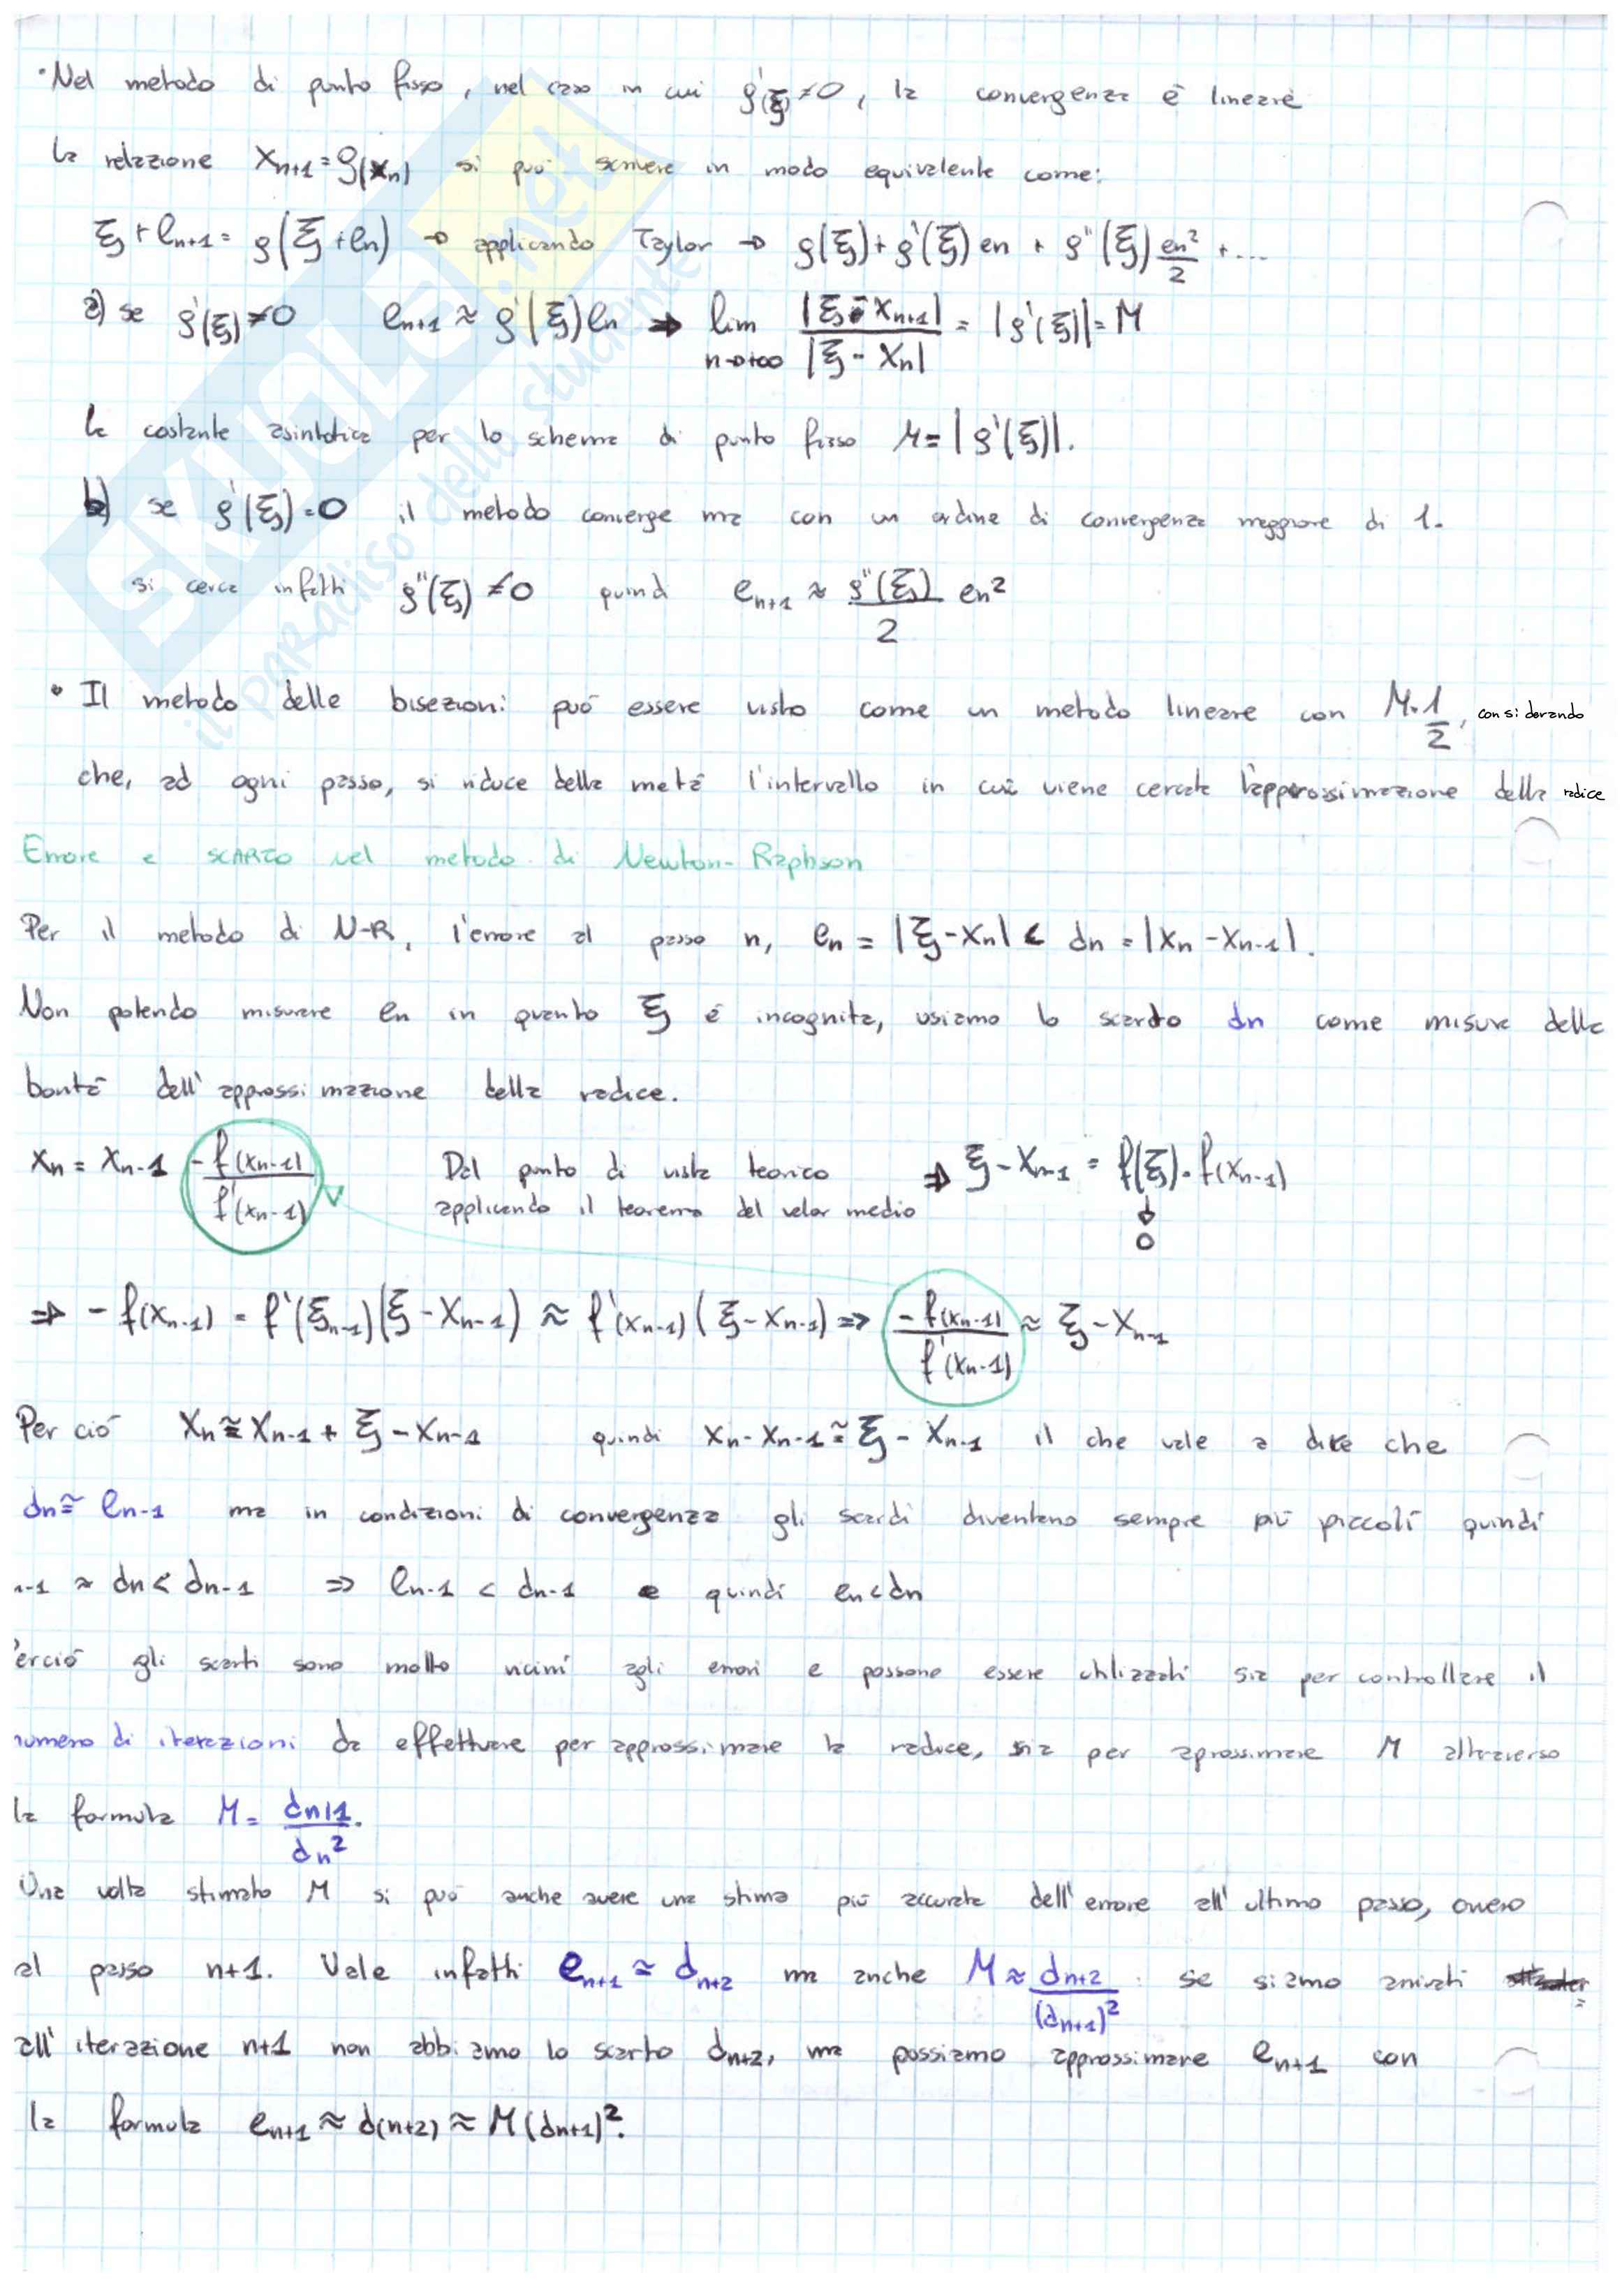 •Nel metodo di punto fisso, nel caso in cui g'(ξ)≠0, la convergenza è lineare
la relazione x_{n+1}=g(x_n) si può scrivere in modo equivalente come:
ξ+e_{n+1}= g(ξ+e_n) → applicando Taylor → g(ξ)+g'(ξ)e_n + g''(ξ) e_n²/2 +...
a) se g'(ξ)≠0 e_{n+1} ≈ g'(ξ)e_n ⇒ lim n→+∞ |ξ-x_{n+1}|/|ξ-x_n| = |g'(ξ)|= M
la costante asintotica per lo schema di punto fisso M=|g'(ξ)|.
b) se g'(ξ)=0 il metodo converge ma con un ordine di convergenza maggiore di 1.
si cerca infatti g''(ξ)≠0 quindi e_{n+1} ≈ g''(ξ)/2 e_n²
• Il metodo delle bisezioni può essere visto come un metodo lineare con M=1/2, considerando
che, ad ogni passo, si riduce della metà l'intervallo in cui viene cercata l'approssimazione della radice
Errore e SCARTO nel metodo di Newton-Raphson
Per il metodo di N-R, l'errore al passo n, e_n = |ξ-x_n| < d_n = |x_n-x_{n-1}|.
Non potendo misurare e_n in quanto ξ è incognita, usiamo lo scarto dn come misura della
bontà dell'approssimazione della radice.
x_n = x_{n-1} -f(x_{n-1})/f'(x_{n-1}) Dal punto di vista teorico ⇒ ξ-x_{n-1} = f(ξ)-f(x_{n-1})
applicando il teorema del valor medio ↓
0
⇒ -f(x_{n-1}) = f'(ξ_{n-1})(ξ-x_{n-1}) ≈ f'(x_{n-1})(ξ-x_{n-1}) ⇒ -f(x_{n-1})/f'(x_{n-1}) ≈ ξ-x_{n-1}
Per ciò x_n ≅ x_{n-1} + ξ-x_{n-1} quindi x_n-x_{n-1} ≅ ξ-x_{n-1} il che vale a dire che
dn ≅ e_{n-1} ma in condizioni di convergenza gli scarti diventano sempre più piccoli quindi
n-1 ≈ dn < d_{n-1} ⇒ e_{n-1} < d_{n-1} e quindi en<dn
erciò gli scarti sono molto vicini agli errori e possono essere utilizzati sia per controllare il
numero di iterazioni da effettuare per approssimare la radice, sia per aprossimare M attraverso
la formula M= d_{n+1}/d_n².
Una volta stimato M si può anche avere una stima più accurata dell'errore all'ultimo passo, ovvero
al passo n+1. Vale infatti e_{n+1} ≅ d_{n+2} ma anche M ≈ d_{n+2}/(d_{n+1})² : se siamo arrivati
all'iterazione n+1 non abbiamo lo scarto d_{n+2}, ma possiamo approssimare e_{n+1} con
la formula e_{n+1} ≈ d(n+2) ≈ M(d_{n+1})².
SKUOLA.net
il paradiso dello studente